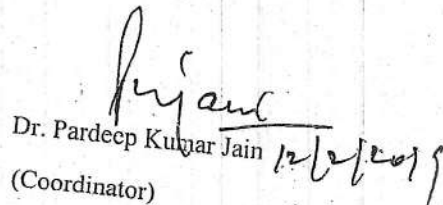 Dr. Pardeep Kumar Jain 12/2/2019
(Coordinator)